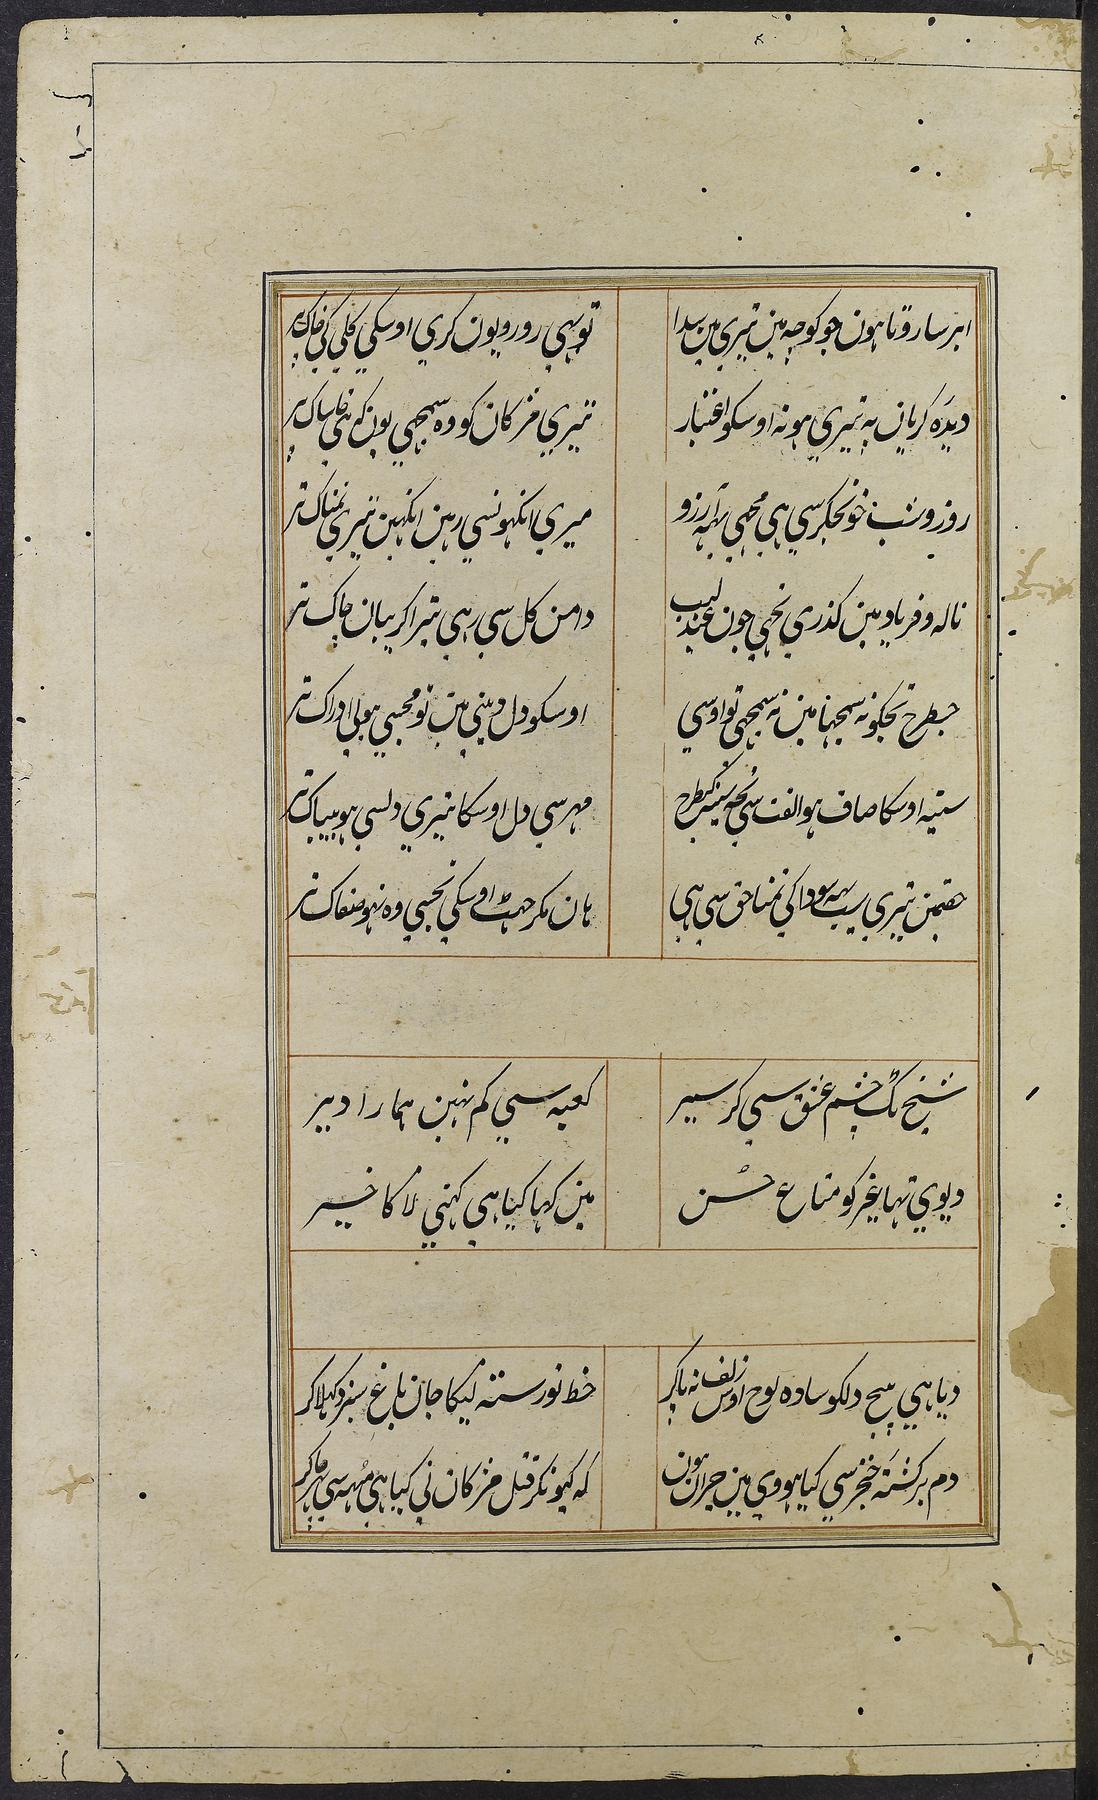 ابر سا روتا ہون جو کوچہ مین تیری مین سدا
توبہی رو رو یون کری اوسکی کلی کی خاک تر
دیدہ کریان پہ تیری ہو نہ اوسکو اعتبار
تیری مژکان کو وہ سمجہی یون کہ ہی خاشاک تر
روز و شب خونجکر سی ہی مجہی یہہ آرزو
میری انکہونسی رہین انکہین تیری نمناک تر
نالہ و فریاد مین کذری تجہی جون عندلیب
دامن کل سی رہی تیرا کریبان چاک تر
جسطرح تجکو نہ سمجہا مین نہ سمجہی تو اوسی
اوسکو دل دینی مین تو مجہسی ہو بی ادراک تر
سینہ اوسکا صاف ہو الفت سی تجہہ
مہر سی دل اوسکا تیری دلسی ہو بیباک تر
حقمین تیری یہہ سودا کی تمنا حق سی ہی
ہان مکر جہٹ اوسکی تجسی وہ نہو سفاک تر
شیخ ٹک چشم عشق سی کر سیر
کعبہ سی کم نہین ہمارا دیر
دیوی تہا غیر کو متاع حسن
مین کہا کیا ہی کہنی لاکا خیر
دیا ہی پیچ دلکو سادہ لوح اوس زلف نہ پاکر
خط نورستہ نیکا جان باغ سبز دکہلاکر
دم برکشتہ خنجر سی کیا ہووی مین حیران ہون
کہ کیونکر قتل مژکان نی کیا ہی مونہہ سی پہر جاکر